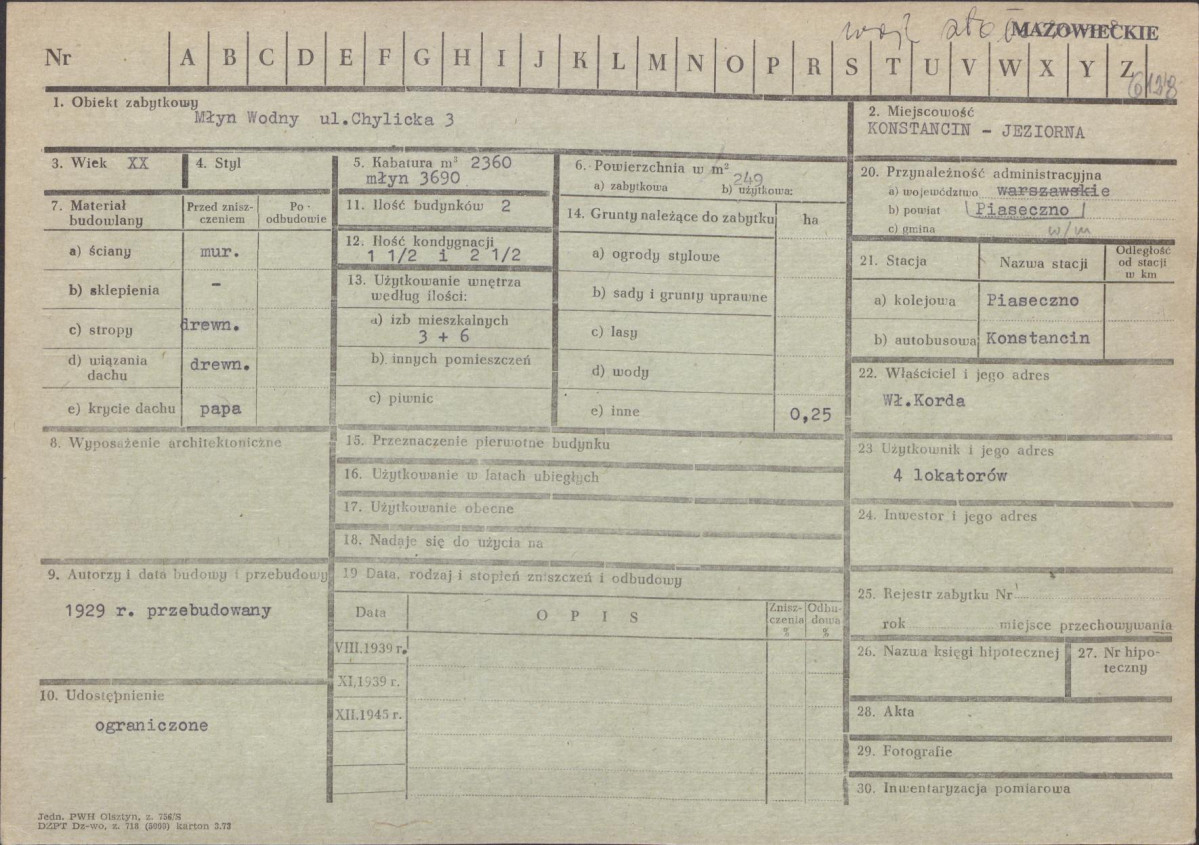 MAZOWIECKIE
Nr A B C D E F G H I J K L M N O P R S T U V W X Y Z
6128
1. Obiekt zabytkowy
Młyn Wodny ul.Chylicka 3
2. Miejscowość
KONSTANCIN - JEZIORNA
3. Wiek XX
4. Styl
5. Kabatura m³ 2360
młyn 3690
6. Powierzchnia w m²
249
a) zabytkowa b) użytkowa:
7. Materiał budowlany
Przed zniszczeniem
Po odbudowie
a) ściany mur.
b) sklepienia -
c) stropy drewn.
d) wiązania dachu drewn.
e) krycie dachu papa
8. Wyposażenie architektoniczne
9. Autorzy i data budowy i przebudowy
1929 r. przebudowany
10. Udostępnienie
ograniczone
11. Ilość budynków 2
12. Ilość kondygnacji
1 1/2 i 2 1/2
13. Użytkowanie wnętrza
według ilości:
a) izb mieszkalnych
3 + 6
b) innych pomieszczeń
c) piwnic
14. Grunty należące do zabytku ha
a) ogrody stylowe
b) sady i grunty uprawne
c) lasy
d) wody
e) inne 0,25
15. Przeznaczenie pierwotne budynku
16. Użytkowanie w latach ubiegłych
17. Użytkowanie obecne
18. Nadaje się do użycia na
19 Data, rodzaj i stopień zniszczeń i odbudowy
Data OPIS Zniszczenia % Odbudowa %
VIII.1939 r.
XI.1939 r.
XII.1945 r.
20. Przynależność administracyjna
a) województwo warszawskie
b) powiat Piaseczno
c) gmina w/m
21. Stacja Nazwa stacji Odległość od stacji w km
a) kolejowa Piaseczno
b) autobusowa Konstancin
22. Właściciel i jego adres
Wł.Korda
23 Użytkownik i jego adres
4 lokatorów
24. Inwestor i jego adres
25. Rejestr zabytku Nr
rok miejsce przechowywania
26. Nazwa księgi hipotecznej
27. Nr hipoteczny
28. Akta
29. Fotografie
30. Inwentaryzacja pomiarowa
Jedn. PWH Olsztyn, z. 756/S
DZPT Dz-wo, z. 718 (5000) karton 3.73